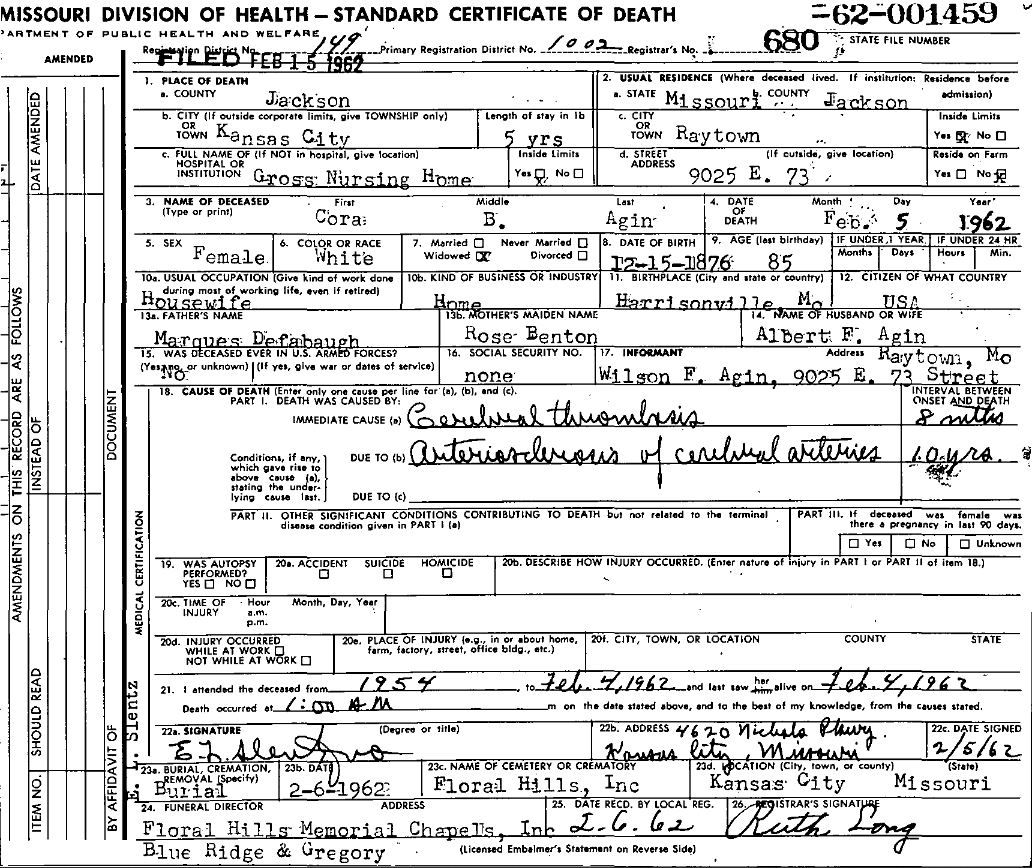 MISSOURI DIVISION OF HEALTH — STANDARD CERTIFICATE OF DEATH
=62-001459
STATE FILE NUMBER
PARTMENT OF PUBLIC HEALTH AND WELFARE
Registration District No. 149 Primary Registration District No. 1002 Registrar's No. 680
AMENDED
FILED FEB 15 1962
1. PLACE OF DEATH
a. COUNTY Jackson
2. USUAL RESIDENCE (Where deceased lived. If institution: Residence before admission)
a. STATE Missouri b. COUNTY Jackson
b. CITY (If outside corporate limits, give TOWNSHIP only) OR TOWN Kansas City
Length of stay in 1b 5 yrs
c. CITY OR TOWN Raytown
Inside Limits Yes ☒ No ☐
c. FULL NAME OF (If NOT in hospital, give location) HOSPITAL OR INSTITUTION Gross Nursing Home
Inside Limits Yes ☒ No ☐
d. STREET ADDRESS (If outside, give location) 9025 E. 73
Reside on Farm Yes ☐ No ☒
3. NAME OF DECEASED (Type or print) First Cora Middle B. Last Agin
4. DATE OF DEATH Month Feb. Day 5 Year 1962
5. SEX Female
6. COLOR OR RACE White
7. Married ☐ Never Married ☐ Widowed ☒ Divorced ☐
8. DATE OF BIRTH 12-15-1876
9. AGE (last birthday) 85
IF UNDER 1 YEAR Months Days
IF UNDER 24 HR Hours Min.
10a. USUAL OCCUPATION (Give kind of work done during most of working life, even if retired) Housewife
10b. KIND OF BUSINESS OR INDUSTRY Home
11. BIRTHPLACE (City and state or country) Harrisonville, Mo
12. CITIZEN OF WHAT COUNTRY USA
13a. FATHER'S NAME Marques Defabaugh
13b. MOTHER'S MAIDEN NAME Rose Benton
14. NAME OF HUSBAND OR WIFE Albert F. Agin
15. WAS DECEASED EVER IN U.S. ARMED FORCES? (Yes, no, or unknown) (If yes, give war or dates of service) No
16. SOCIAL SECURITY NO. none
17. INFORMANT Address Raytown, Mo
Wilson F. Agin, 9025 E. 73 Street
18. CAUSE OF DEATH (Enter only one cause per line for (a), (b), and (c).
PART I. DEATH WAS CAUSED BY:
INTERVAL BETWEEN ONSET AND DEATH
IMMEDIATE CAUSE (a) Cerebral thrombosis 8 mths
Conditions, if any, which gave rise to above cause (a), stating the underlying cause last.
DUE TO (b) Arteriosclerosis of cerebral arteries 10 yrs.
DUE TO (c)
PART II. OTHER SIGNIFICANT CONDITIONS CONTRIBUTING TO DEATH but not related to the terminal disease condition given in PART I (a)
PART III. If deceased was female was there a pregnancy in last 90 days.
☐ Yes ☐ No ☐ Unknown
19. WAS AUTOPSY PERFORMED? YES ☐ NO ☐
20a. ACCIDENT ☐ SUICIDE ☐ HOMICIDE ☐
20b. DESCRIBE HOW INJURY OCCURRED. (Enter nature of injury in PART I or PART II of item 18.)
20c. TIME OF INJURY Hour a.m. p.m. Month, Day, Year
20d. INJURY OCCURRED WHILE AT WORK ☐ NOT WHILE AT WORK ☐
20e. PLACE OF INJURY (e.g., in or about home, farm, factory, street, office bldg., etc.)
20f. CITY, TOWN, OR LOCATION COUNTY STATE
21. I attended the deceased from 1954, to Feb. 4, 1962 and last saw her him alive on Feb. 4, 1962
Death occurred at 1:00 AM m on the date stated above, and to the best of my knowledge, from the causes stated.
22a. SIGNATURE (Degree or title)
22b. ADDRESS 4620 Nichols Pkwy. Kansas City, Missouri
22c. DATE SIGNED 2/5/62
23a. BURIAL, CREMATION, REMOVAL (Specify) Burial
23b. DATE 2-6-1962
23c. NAME OF CEMETERY OR CREMATORY Floral Hills, Inc
23d. LOCATION (City, town, or county) (State) Kansas City Missouri
24. FUNERAL DIRECTOR ADDRESS
Floral Hills Memorial Chapells, Inc
Blue Ridge & Gregory
25. DATE RECD. BY LOCAL REG. 2-6-62
26. REGISTRAR'S SIGNATURE Ruth Long
(Licensed Embalmer's Statement on Reverse Side)
AMENDMENTS ON THIS RECORD ARE AS FOLLOWS
DATE AMENDED
INSTEAD OF
DOCUMENT
SHOULD READ
ITEM NO.
BY AFFIDAVIT OF
MEDICAL CERTIFICATION
Slentz